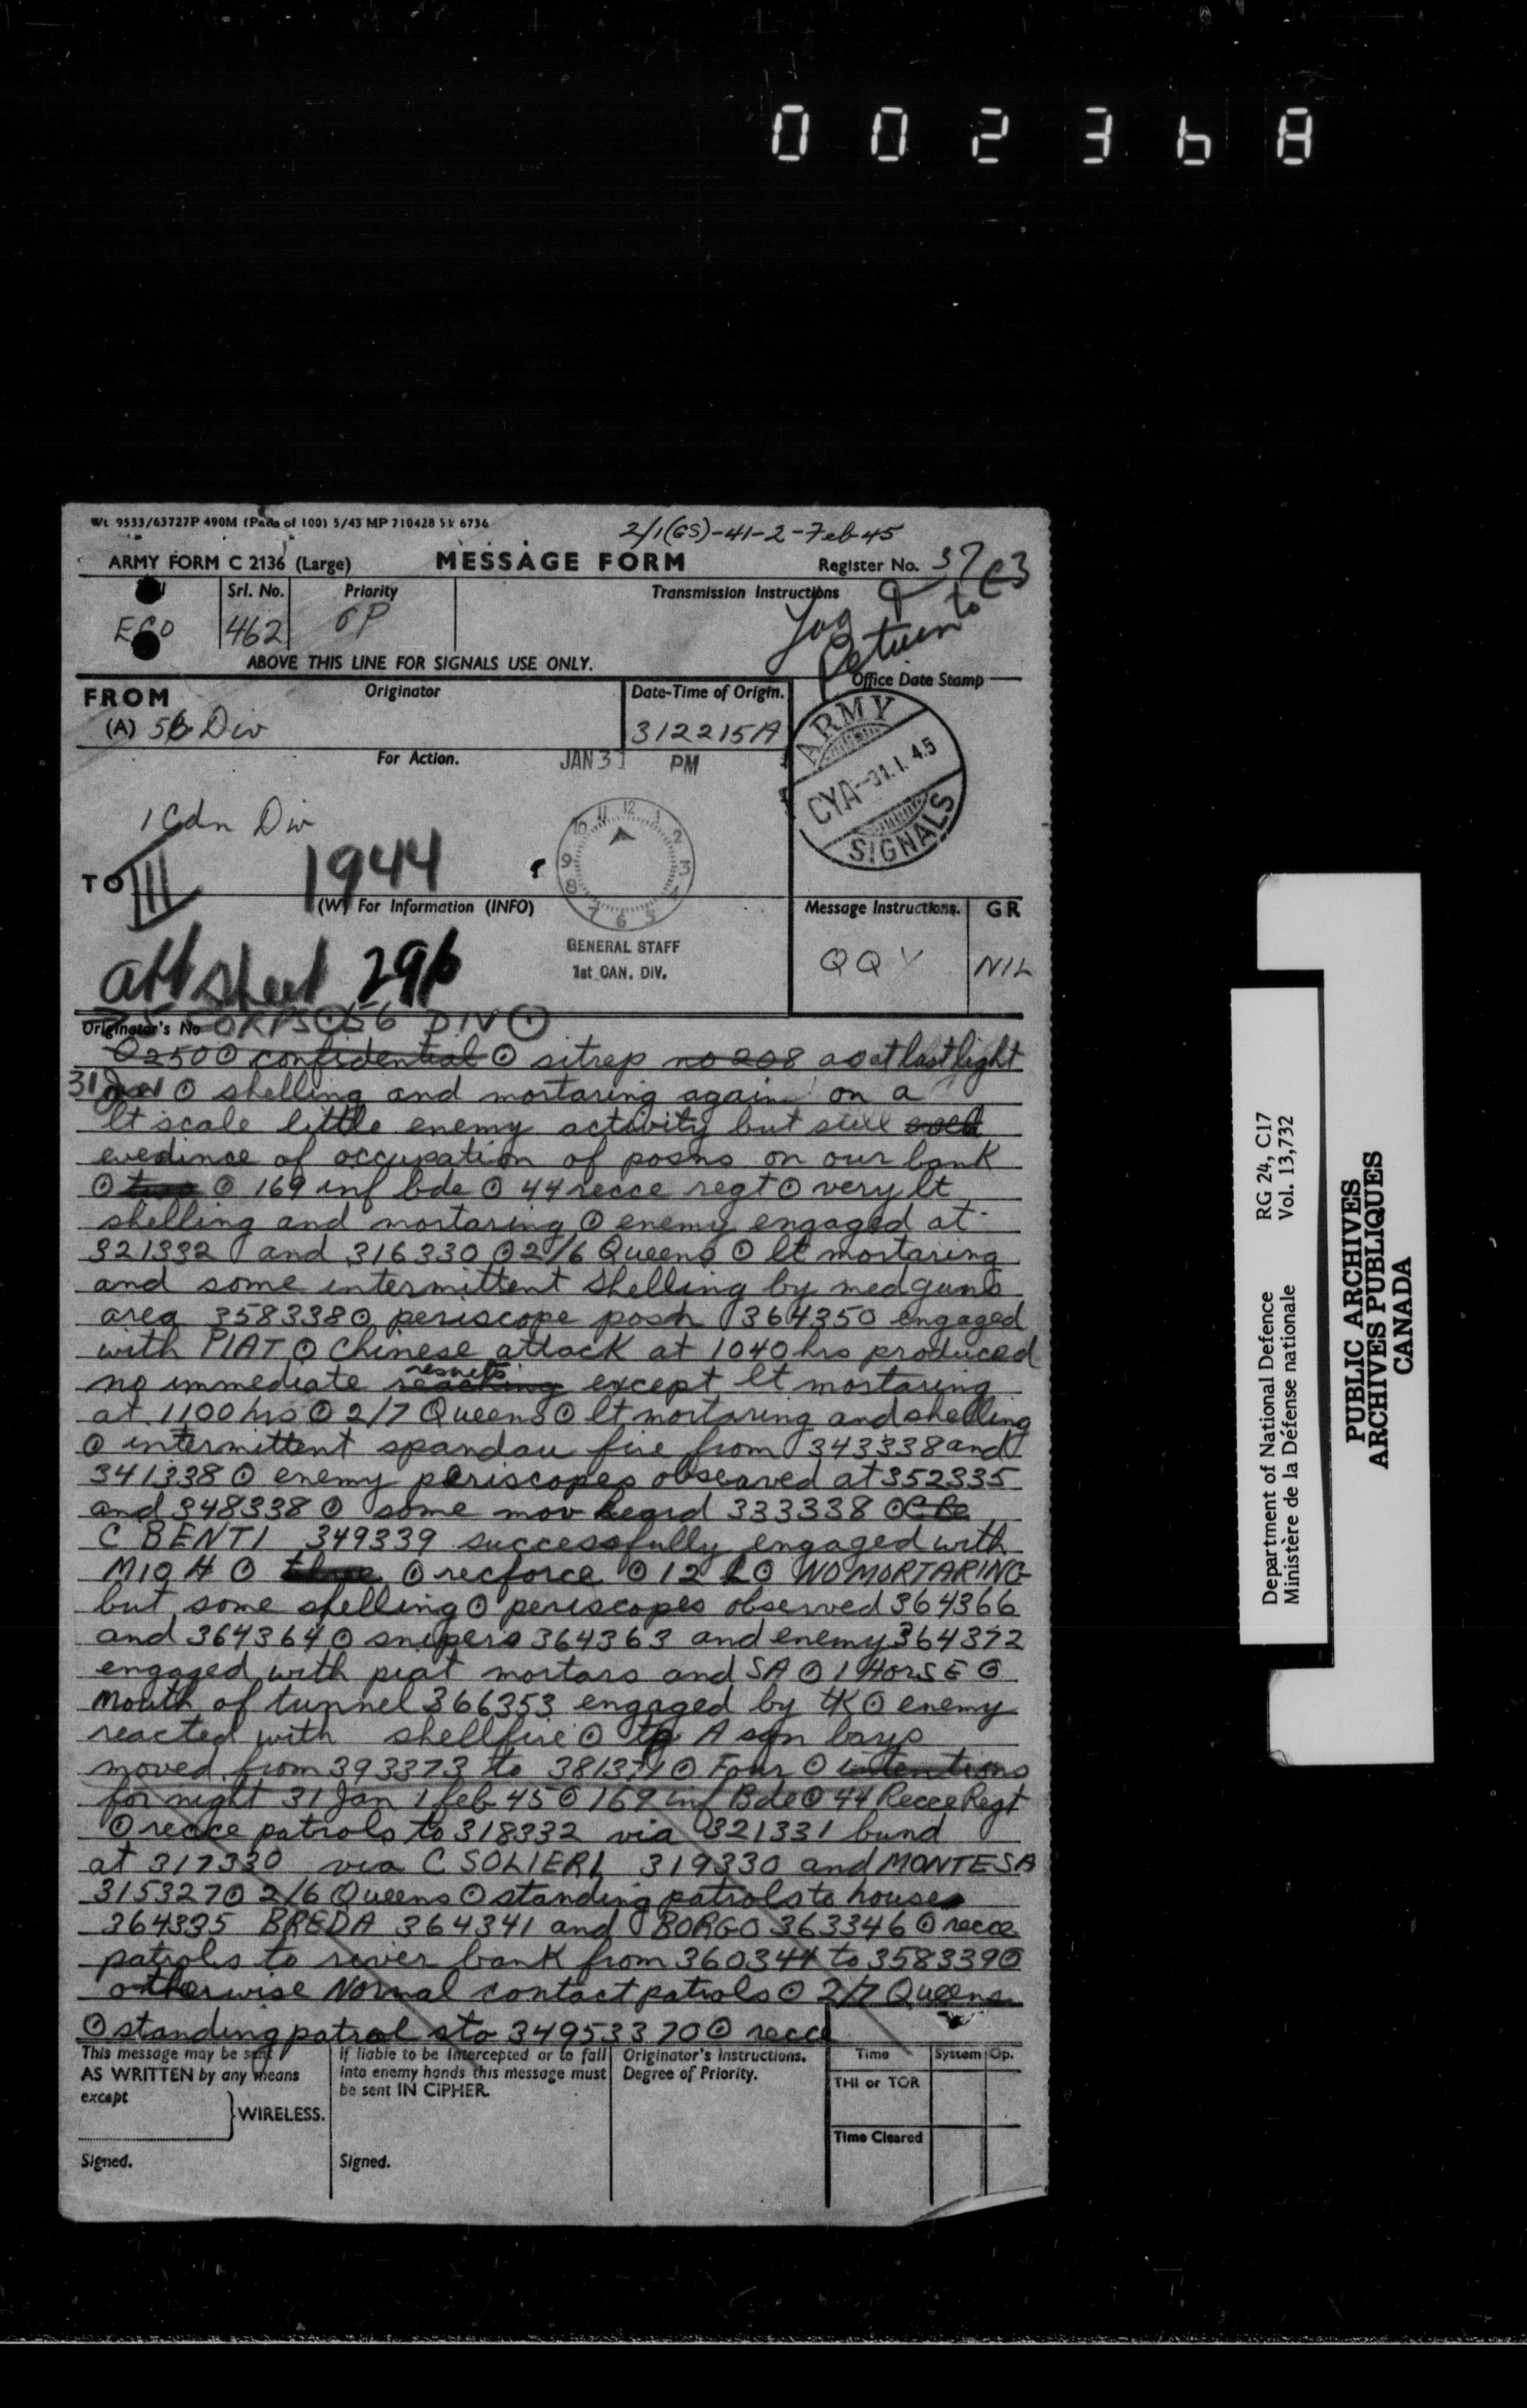 002368
Wt 9533/63727P 490M (Pads of 100) 5/43 MP 710428 51 6736
2/1(GS)-41-2-Feb-45
ARMY FORM C 2136 (Large)
MESSAGE FORM
Register No. 37
Srl. No.
Priority
Transmission Instructions
462
OP
Log
Return to C3
ABOVE THIS LINE FOR SIGNALS USE ONLY.
FROM
Originator
Date-Time of Origin.
Office Date Stamp
(A) 56 Div
312215A
For Action.
JAN 31 PM
ARMY
CYA-31.1.45
SIGNALS
1 Cdn Div
TO
III
1944
(W) For Information (INFO)
Message Instructions.
GR
att sheet 296
GENERAL STAFF
1st CAN. DIV.
QQY
NIL
Originator's No
CORPS ⊙ 56 DIV ⊙
O250 ⊙ confidential ⊙ sitrep no 208 as at last light
31 Jan ⊙ shelling and mortaring again on a
lt scale little enemy activity but still
evedince of occupation of posns on our bank
⊙ two ⊙ 169 inf bde ⊙ 44 recce regt ⊙ very lt
shelling and mortaring ⊙ enemy engaged at
321332 and 316330 ⊙ 2/6 Queens ⊙ lt mortaring
and some intermittent shelling by med guns
area 358338 ⊙ periscope posn 364350 engaged
with PIAT ⊙ Chinese attack at 1040 hrs produced
results
no immediate reaching except lt mortaring
at 1100 hrs ⊙ 2/7 Queens ⊙ lt mortaring and shelling
⊙ intermittent spandau fire from 343338 and
341338 ⊙ enemy periscopes observed at 352335
and 348338 ⊙ some mov heard 333338 ⊙
C BENTI 349339 successfully engaged with
M10 H ⊙ three ⊙ recforce ⊙ 12 L ⊙ NO MORTARING
but some shelling ⊙ periscopes observed 364366
and 364364 ⊙ snipers 364363 and enemy 364372
engaged with piat mortars and SA ⊙ 1 HORSE ⊙
Mouth of tunnel 366353 engaged by tK ⊙ enemy
reacted with shellfire ⊙ tp A sqn bays
moved from 393373 to 381371 ⊙ Four ⊙ intentions
for night 31 Jan 1 feb 45 ⊙ 169 inf Bde ⊙ 44 Recce Regt
⊙ recce patrols to 318332 via 321331 bund
at 317330 via C SOLIERI 319330 and MONTESA
315327 ⊙ 2/6 Queens ⊙ standing patrols to houses
364335 BREDA 364341 and BORGO 363346 ⊙ recce
patrols to river bank from 360344 to 358339 ⊙
otherwise Normal contact patrols ⊙ 2/7 Queens
⊙ standing patrol sto 34953370 ⊙ recce
This message may be sent
AS WRITTEN by any means
except
WIRELESS.
Signed.
If liable to be intercepted or to fall
into enemy hands this message must
be sent IN CIPHER.
Signed.
Originator's Instructions.
Degree of Priority.
Time
System
Op.
THI or TOR
Time Cleared
Department of National Defence
Ministère de la Défense nationale
RG 24, C17
Vol. 13,732
PUBLIC ARCHIVES
ARCHIVES PUBLIQUES
CANADA